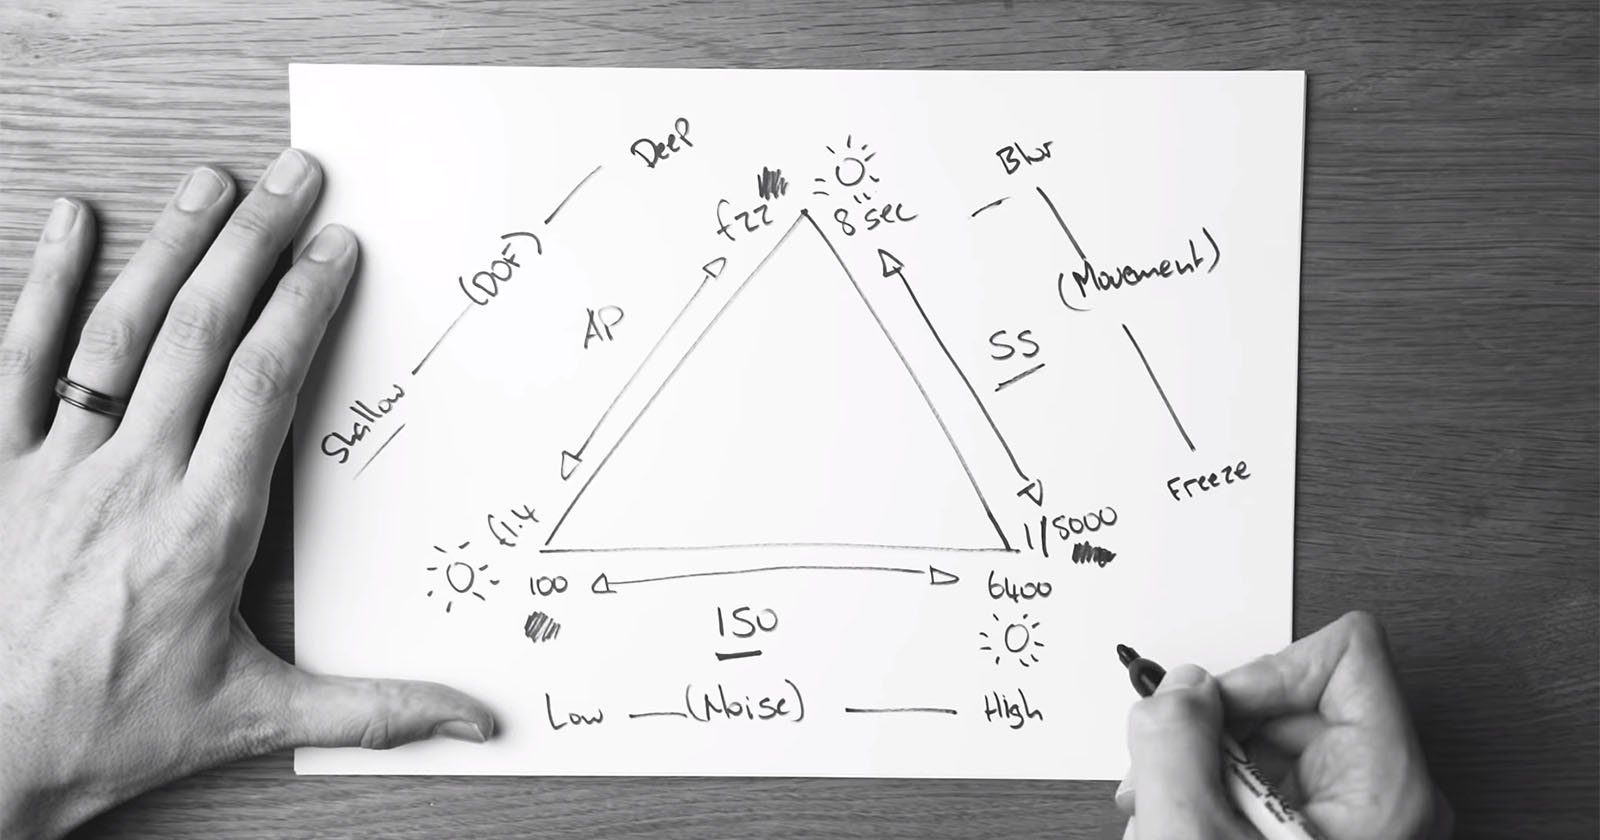 Deep
Blur
f22
8 sec
(DOF)
(Movement)
AP
SS
Shallow
Freeze
f1.4
1/8000
100
6400
ISO
Low (Noise) High